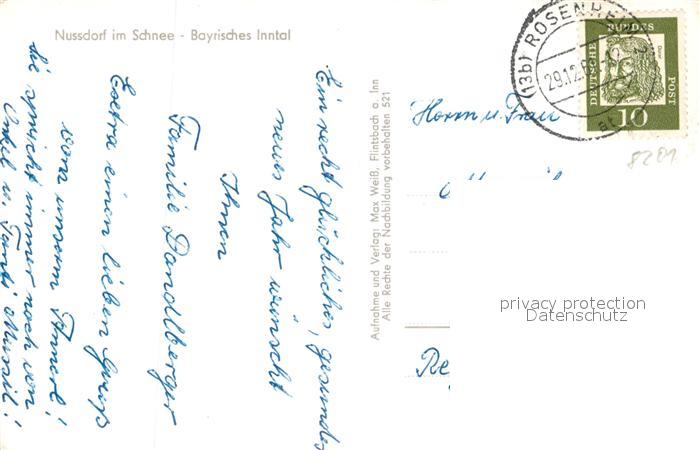 Nussdorf im Schnee - Bayrisches Inntal
Ein recht glückliches, gesundes
neues Jahr wünscht
Ihnen
Familie Dandlberger
Extra einen lieben Gruß
von unserm Annerl!
die spricht immer noch von
Onkel u. Tante
Aufnahme und Verlag: Max Weiß, Flintsbach a. Inn
Alle Rechte der Nachbildung vorbehalten 521
(13b) ROSENHEIM
29.12.
DEUTSCHE
BUNDES
POST
Dürer
10
Herrn u. Frau
8201
privacy protection
Datenschutz
Re